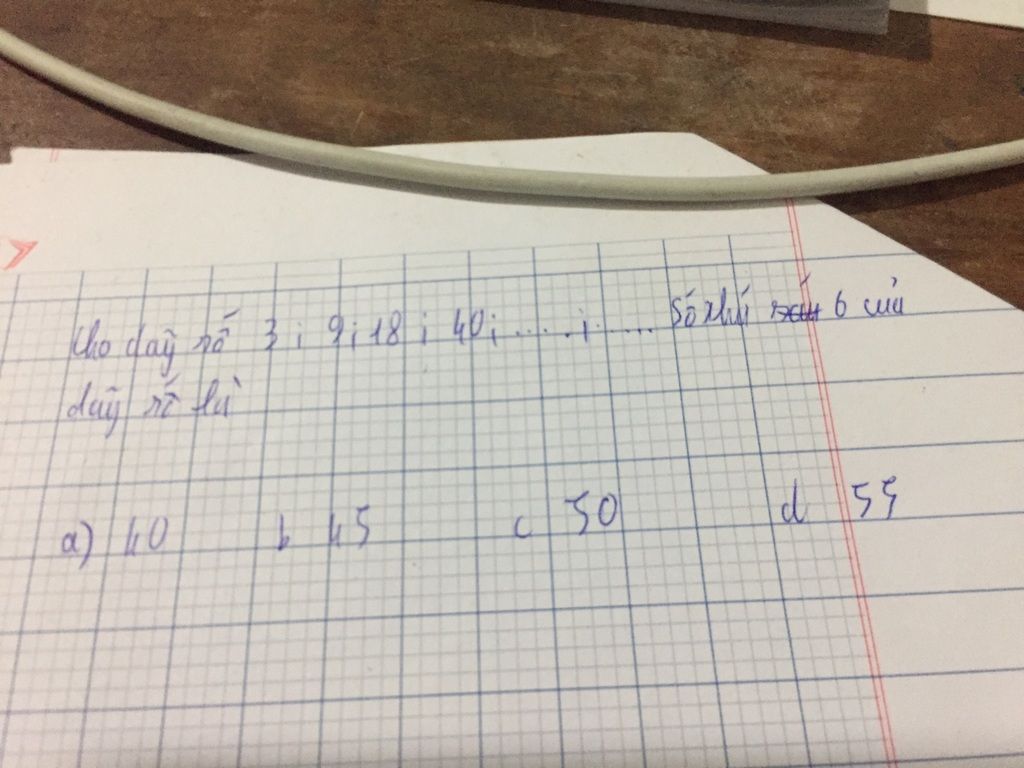 cho dãy số 3 ; 9 ; 18 ; 40 ; ..... ; ..... số thứ 6 của
dãy số là
a) 40 b 45 c 50 d 55